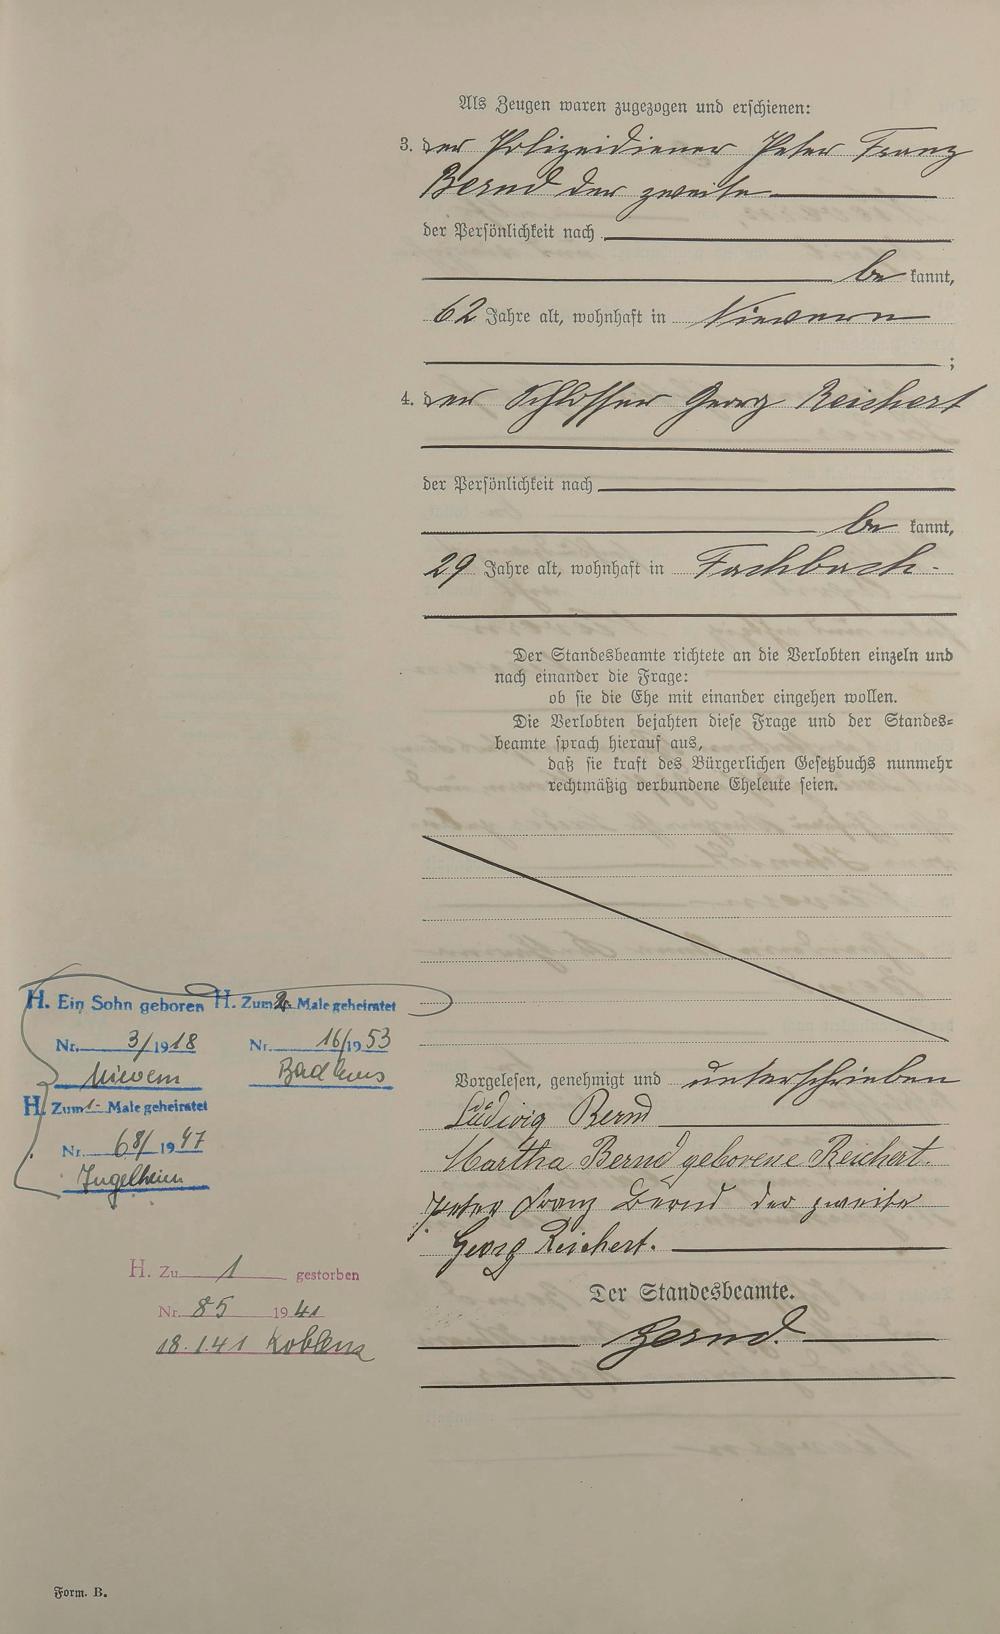 Als Zeugen waren zugezogen und erschienen:
3. der Polizeidiener Peter Franz
Bernd der zweite
der Persönlichkeit nach
be kannt,
62 Jahre alt, wohnhaft in Nievern
;
4. der Schlosser Georg Reichert
der Persönlichkeit nach
be kannt,
29 Jahre alt, wohnhaft in Fachbach.
Der Standesbeamte richtete an die Verlobten einzeln und
nach einander die Frage:
ob sie die Ehe mit einander eingehen wollen.
Die Verlobten bejahten diese Frage und der Standes=
beamte sprach hierauf aus,
daß sie kraft des Bürgerlichen Gesetzbuchs nunmehr
rechtmäßig verbundene Eheleute seien.
Vorgelesen, genehmigt und unterschrieben
Ludwig Bernd
Martha Bernd geborene Reichert.
Peter Franz Bernd der zweite
Georg Reichert.
Der Standesbeamte.
Bernd.
H. Ein Sohn geboren
Nr. 3/1918
Nievern
H. Zum 2. Male geheiratet
Nr. 16/1953
Bad Ems
H. Zum 1. Male geheiratet
Nr. 68/1947
Ingelheim
H. Zu 1 gestorben
Nr. 85 1941
18.1.41 Koblenz
Form. B.